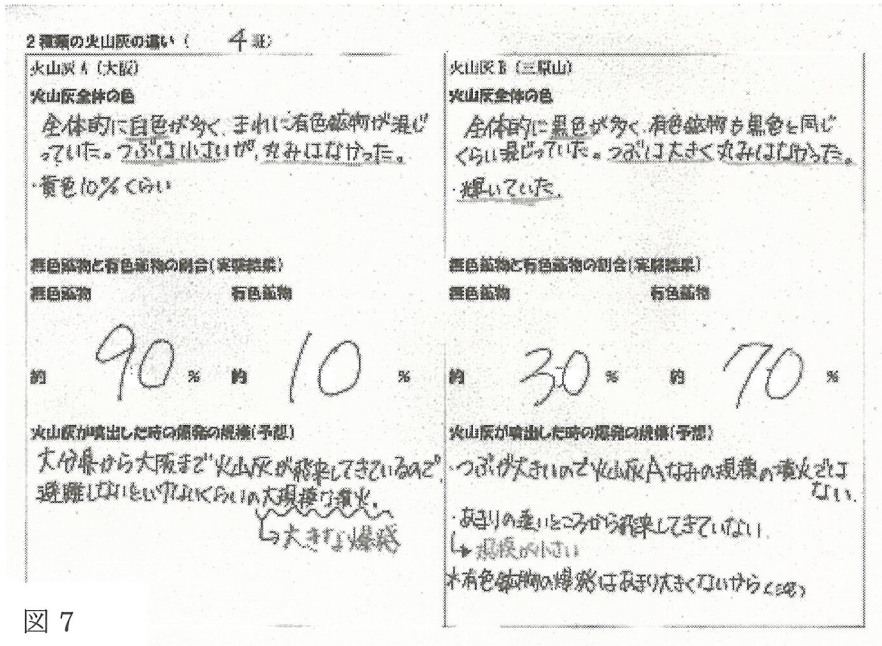 2種類の火山灰の違い( 4 班)
火山灰A(大阪)
火山灰全体の色
全体的に白色が多く、まれに有色鉱物が混じ
っていた。つぶは小さいが、丸みはなかった。
・黄色10%くらい
無色鉱物と有色鉱物の割合(実験結果)
無色鉱物 有色鉱物
約 90 % 約 10 %
火山灰が噴出した時の爆発の規模(予想)
大分県から大阪まで火山灰が飛来してきているので、
避難しないといけないくらいの大規模な噴火。
↳大きな爆発
火山灰B(三原山)
火山灰全体の色
全体的に黒色が多く、有色鉱物も黒色と同じ
くらい混じっていた。つぶは大きく丸みはなかった。
・輝いていた。
無色鉱物と有色鉱物の割合(実験結果)
無色鉱物 有色鉱物
約 30 % 約 70 %
火山灰が噴出した時の爆発の規模(予想)
・つぶが大きいので火山灰Aなみの規模の噴火では
ない。
・あまりの遠いところから飛来してきていない
↳規模が小さい
*有色鉱物の爆発はあまり大きくないから
図 7